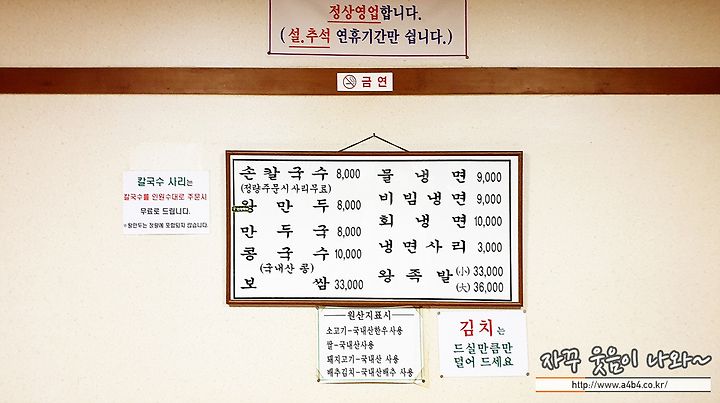 정상영업합니다.
(설.추석 연휴기간만 쉽니다.)
금연
칼국수 사리는
칼국수를 인원수대로 주문시
무료로 드립니다.
*왕만두는 정량에 포함되지 않습니다.
손칼국수 8,000
(정량주문시사리무료)
왕만두 8,000
만두국 8,000
콩국수 10,000
(국내산 콩)
보쌈 33,000
물냉면 9,000
비빔냉면 9,000
회냉면 10,000
냉면사리 3,000
왕족발 (小) 33,000
(大) 36,000
원산지표시
소고기-국내산한우사용
쌀-국내산사용
돼지고기-국내산 사용
배추김치-국내산배추 사용
김치는
드실만큼만
덜어 드세요
자꾸 웃음이 나와~
http://www.a4b4.co.kr/